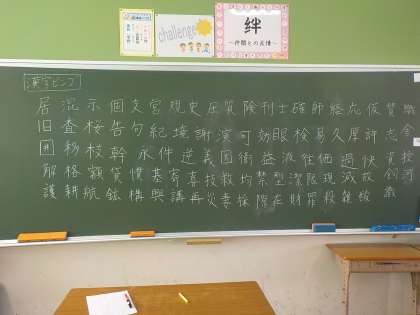 challenge
絆
～仲間との友情～
漢字ビンゴ
居 混 示 個 支 営 規 史 圧 質 険 刊 士 確 師 総 応 仮 賛 識
旧 査 桜 告 句 紀 境 謝 演 可 効 眼 検 易 久 厚 許 志 舎
囲 移 枝 幹 永 件 逆 義 団 衛 益 液 往 価 過 快 資 技
解 格 額 賀 慣 基 寄 喜 技 救 均 禁 型 潔 限 現 減 故 飼 河
護 耕 航 鉱 構 興 講 再 災 妻 採 際 在 財